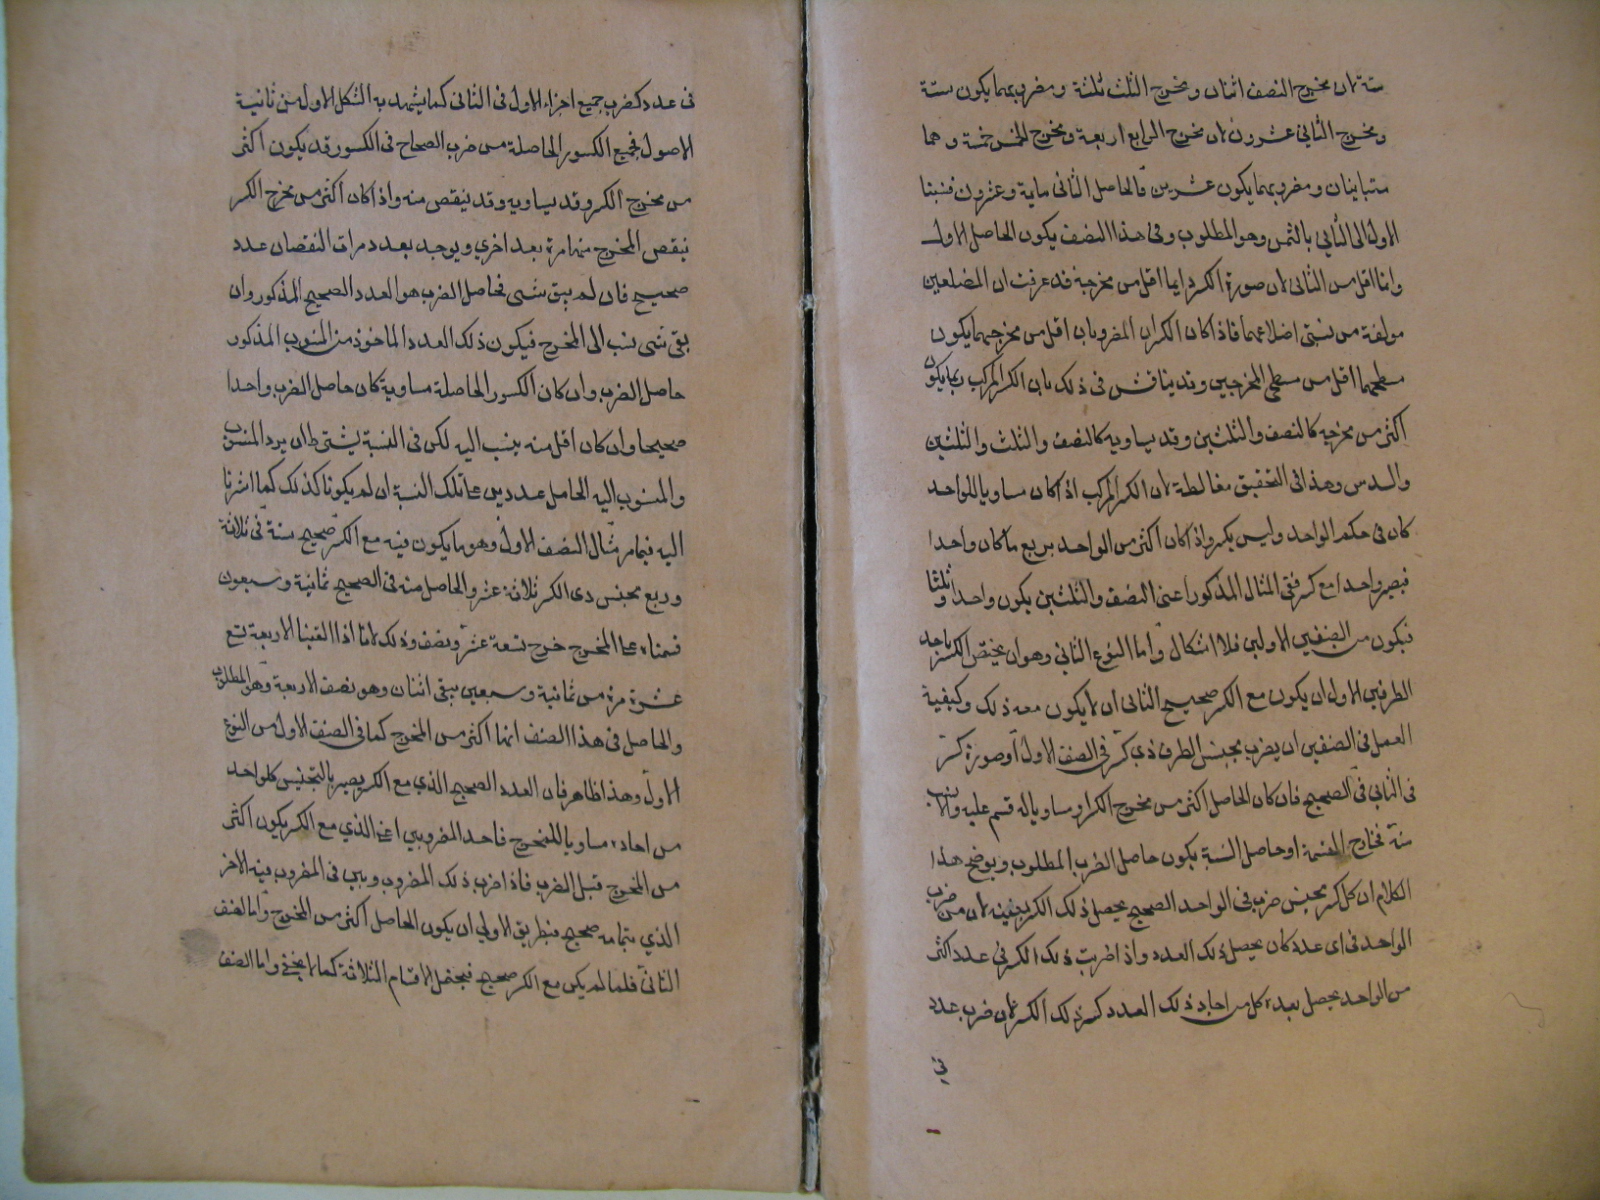 ستة لان مخرج النصف اثنان ومخرج الثلث ثلثة ومضروبهما يكون ستة
ومخرج الثانى عشرون لان مخرج الرابع اربعة ومخرج الخمس خمسة وهما
متباينان ومضروبهما يكون عشرين فالحاصل الثانى ماية وعشرون فنسبنا
الاول الى الثانى بالثمن وهو المطلوب وفى هذا النصف يكون الحاصل الاول
وانما اقل من الثانى لان صورة الكسر دايما اقل من مخرجه قد عرفت ان المضلعين
مولفة من نسبتى اضلاعهما فاذا كان الكسران المضروبان اقل من مخرجيهما يكون
مسطحهما اقل من مسطح المخرجين وقد يناقش فى ذلك بان الكسر المركب ربما يكون
اكثر من مخرجه كالنصف والثلثين وقد يساويه كالنصف والثلث والثلثين
والسدس وهذا فى التحقيق مغالطة لان الكسر المركب اذا كان مساويا للواحد
كان فى حكم الواحد وليس بكسر واذا كان اكثر من الواحد يرفع ما كان واحدا
فيصير واحدا مع كسر ففى المثال المذكور اعنى النصف والثلثين يكون واحدا وثلثا
فيكون من الصنفين الاولين فلا اشكال واما النوع الثانى وهو ان يختص الكسر باحد
الطرفين الاول ان يكون مع الكسر صحيح الثانى ان لا يكون معه ذلك وكيفية
العمل فى الصنفين ان يضرب مجنس الطرف ذى كسر فى الصنف الاول او صورة كسر
فى الثانى فى الصحيح فان كان الحاصل اكثر من مخرج الكسر او مساويا له قسم عليه والا نسب
منه فخارج القسمة او حاصل النسبة يكون حاصل الضرب المطلوب ويوضح هذا
الكلام ان كل كسر مجنس ضرب فى الواحد الصحيح يحصل ذلك الكسر بعينه لان من ضرب
الواحد فى اى عدد كان يحصل ذلك العدد واذا ضربت ذلك الكسر فى عدد اكثر
من الواحد يحصل بعدد كل من احاد ذلك العدد كسر ذلك الكسر لان ضرب عدد
فى
فى عدد كضرب جميع اجزاء الاول فى الثانى كما يشهد به الشكل الاول من ثانية
الاصول فجميع الكسور الحاصلة من ضرب الصحاح فى الكسور قد يكون اكثر
من مخرج الكسر وقد يساويه وقد ينقص منه واذا كان اكثر من مخرج الكسر
ينقص المخرج منها مرة بعد اخرى ويوجد بعدد مرات النقصان عدد
صحيح فان لم يبق شى فحاصل الضرب هو العدد الصحيح المذكور وان
بقى شى نسب الى المخرج فيكون ذلك العدد الماخوذ من المنسوب المذكور
حاصل الضرب وان كان الكسور الحاصلة مساوية كان حاصل الضرب واحدا
صحيحا وان كان اقل منه ينسب اليه لكن فى النسبة يشترط ان يرد المنسوب
والمنسوب اليه الحاصل عددين على تلك النسبة ان لم يكونا كذلك كما اشرنا
اليه فيما مر مثال الصنف الاول وهو ما يكون فيه مع الكسر صحيح ستة فى ثلاثة
وربع مجنس ذى الكسر ثلاثة عشر والحاصل منه فى الصحيح ثمانية وسبعون
قسمناه على المخرج خرج تسعة عشر ونصف وذلك لانا اذا القينا الاربعة تسع
عشرة مرة من ثمانية وسبعين يبقى اثنان وهو نصف الاربعة وهو المطلوب
والحاصل فى هذا الصنف انما اكثر من المخرج كما فى الصنف الاول من النوع
الاول وهذا ظاهر فان العدد الصحيح الذي مع الكسر يصير بالتجنيس كل واحد
من احاده مساويا للمخرج فاحد المضروبين اعنى الذي مع الكسر يكون اكثر
من المخرج قبل الضرب فاذا ضرب ذلك المضروب فى المضروب فيه الاخر
الذي بتمامه صحيح فبطريق الاولي ان يكون الحاصل اكثر من المخرج واما الصنف
الثانى فلما لم يكن مع الكسر صحيح فيحتمل الاقسام الثلاثة كما لا يخفى واما الصنف